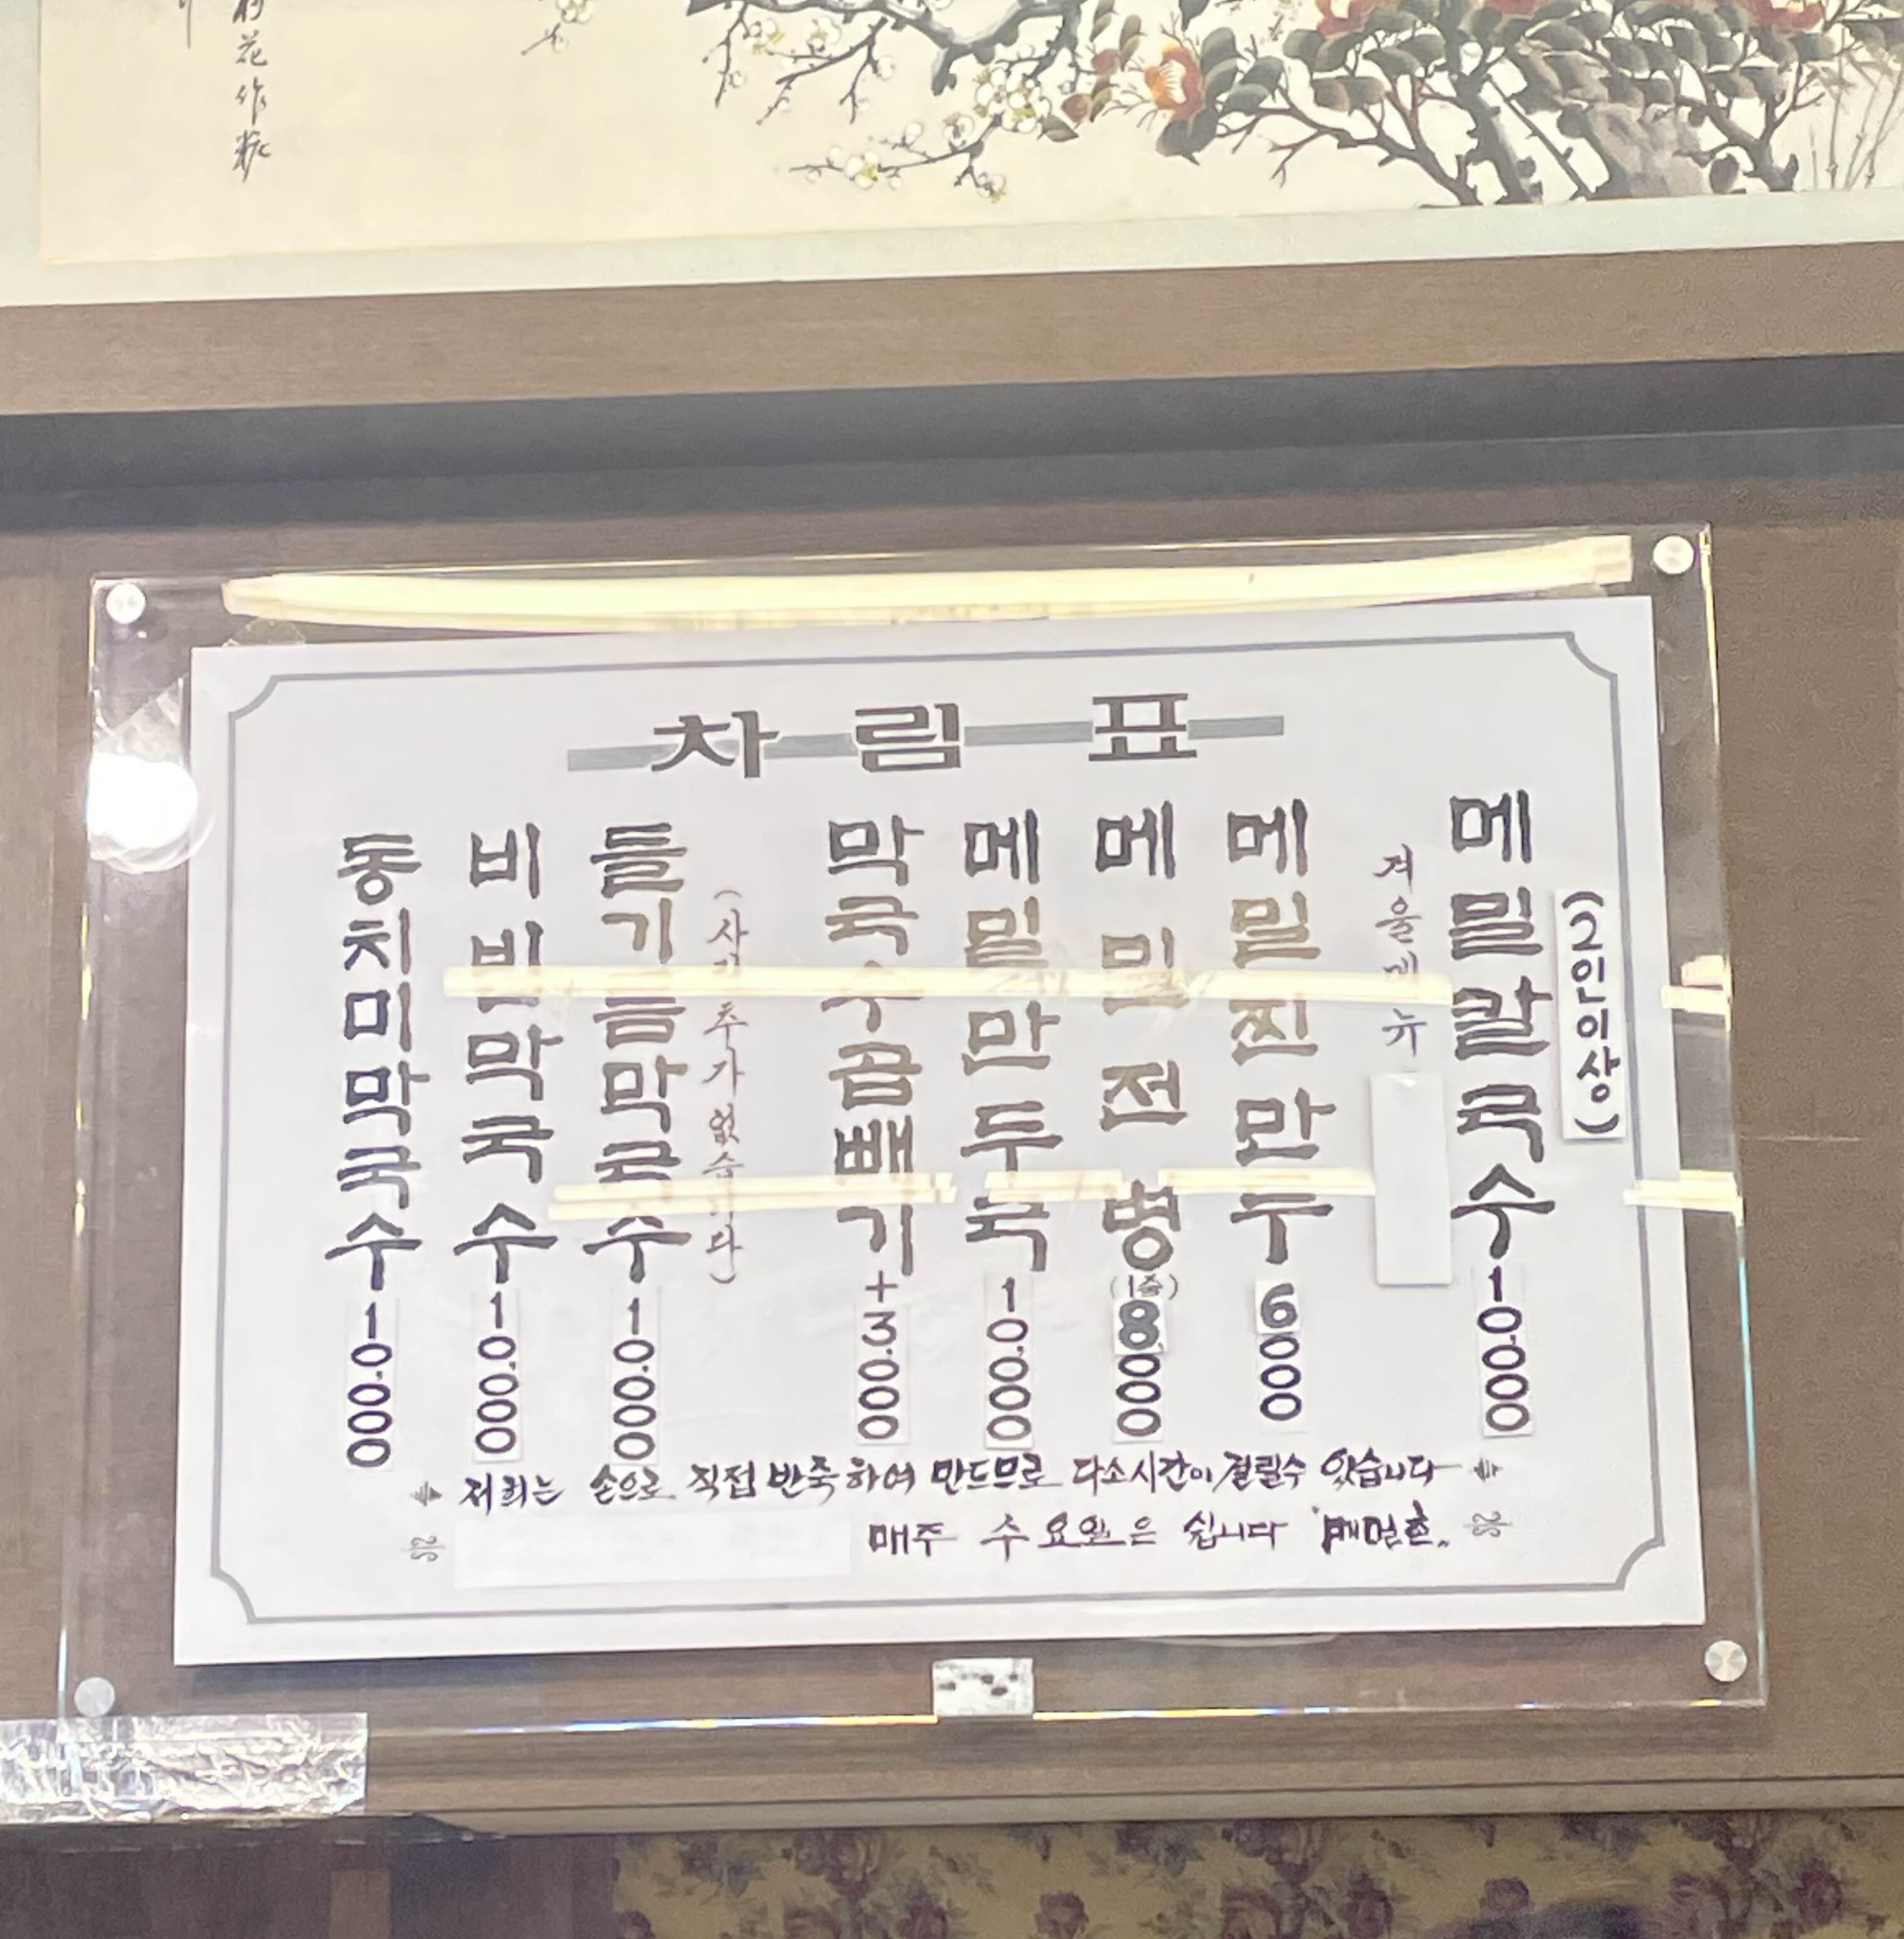 花作粧
차림표
동치미막국수 10,000
비빔막국수 10,000
들기름막국수 10,000
(사리추가없습니다)
막국수곱빼기 +3,000
메밀만두국 10,000
메밀전병 (1줄) 8,000
메밀찐만두 6000
겨울메뉴
메밀칼국수 10,000
(2인이상)
저희는 손으로 직접 반죽하여 만드므로 다소시간이 걸릴수 있습니다
매주 수요일은 쉽니다